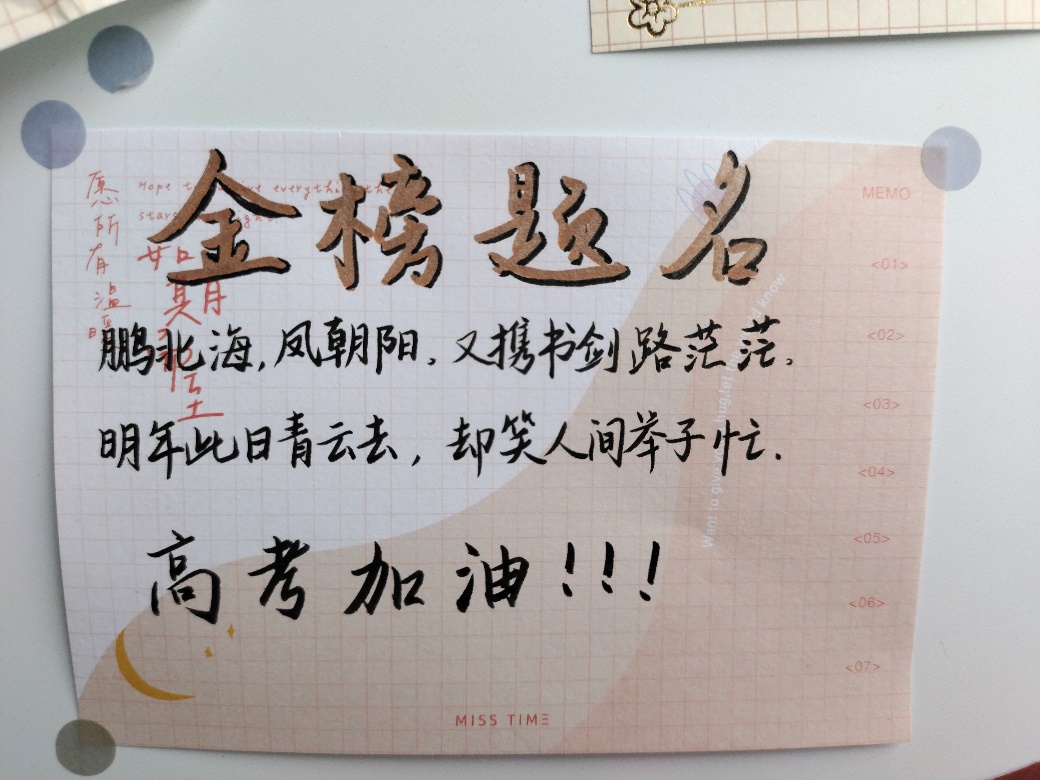 金榜题名
鹏北海,凤朝阳.又携书剑路茫茫.
明年此日青云去,却笑人间举子忙.
高考加油!!!
愿所有温暖
如期
Hope
everything the
stars
MEMO
<01>
<02>
<03>
<04>
<05>
<06>
<07>
Want to give
hug,let
know
MISS TIME